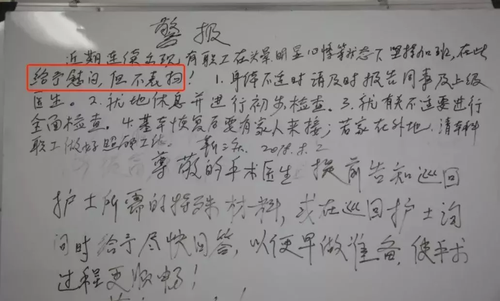 警报
近期连续出现有职工在头晕明显心悸等状态下坚持加班,在此
给予慰问,但不表扬! 1.身体不适时请及时报告同事及上级
医生。2.就地休息并进行初步检查。3.如有不适要进行
全面检查。4.基本恢复后要有家人来接;若家在外地,请本科
职工做好照顾工作。 2018.
尊敬的手术医生 提前告知巡回
护士所需的特殊材料,或在巡回护士询
问时给予尽快回答,以便早做准备,使手术
过程更顺畅!